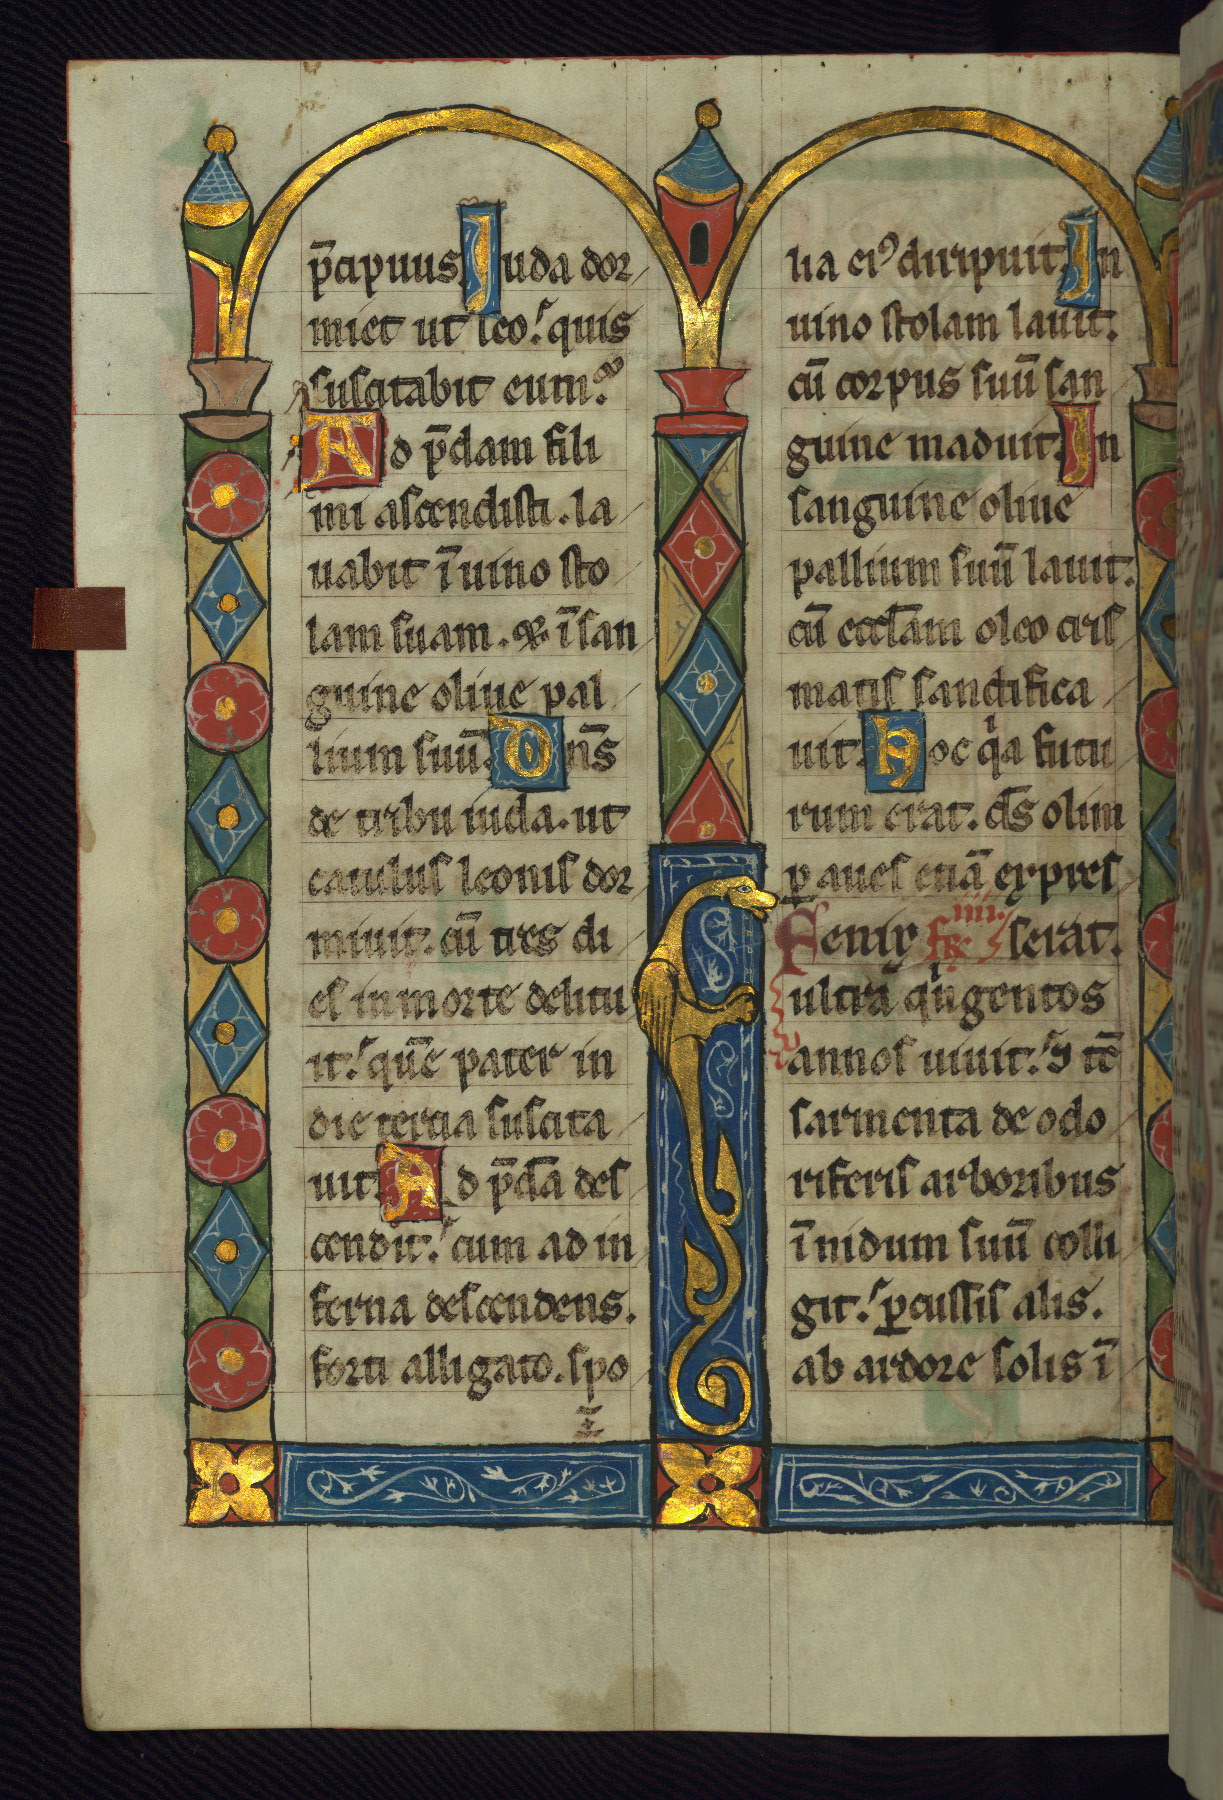 p̄cipuus. Juda dor
miet ut leo. quis
suscitabit eum.
Ad p̄dam fili
mi ascendisti. la
uabit ī uino sto
lam suam. ⁊ ī san
guine oliue pal
lium suū. Dn̄s
de tribu iuda. ut
catulus leonis dor
miuit. cū tres di
es in morte delitu
it. quē pater in
die tercia suscita
uit. Ad p̄dā des
cendit. cum ad in
ferna descendens.
forti alligato. spo
lia eiꝰ diripuit. In
uino stolam lauit.
cū corpus suū san
guine maduit. In
sanguine oliue
pallium suū lauit.
cū eccl̄am oleo cris
matis sanctifica
uit. Hoc qⁱa futu
rum erat. d̄s olim
ꝑ aues etiā expres
Fenix .iiii. serat.
ultra qⁱngentos
annos uiuit.
sarmenta de odo
riferis arboribus
ī nidum suū colli
git. ꝑcussis alis.
ab ardore solis ī